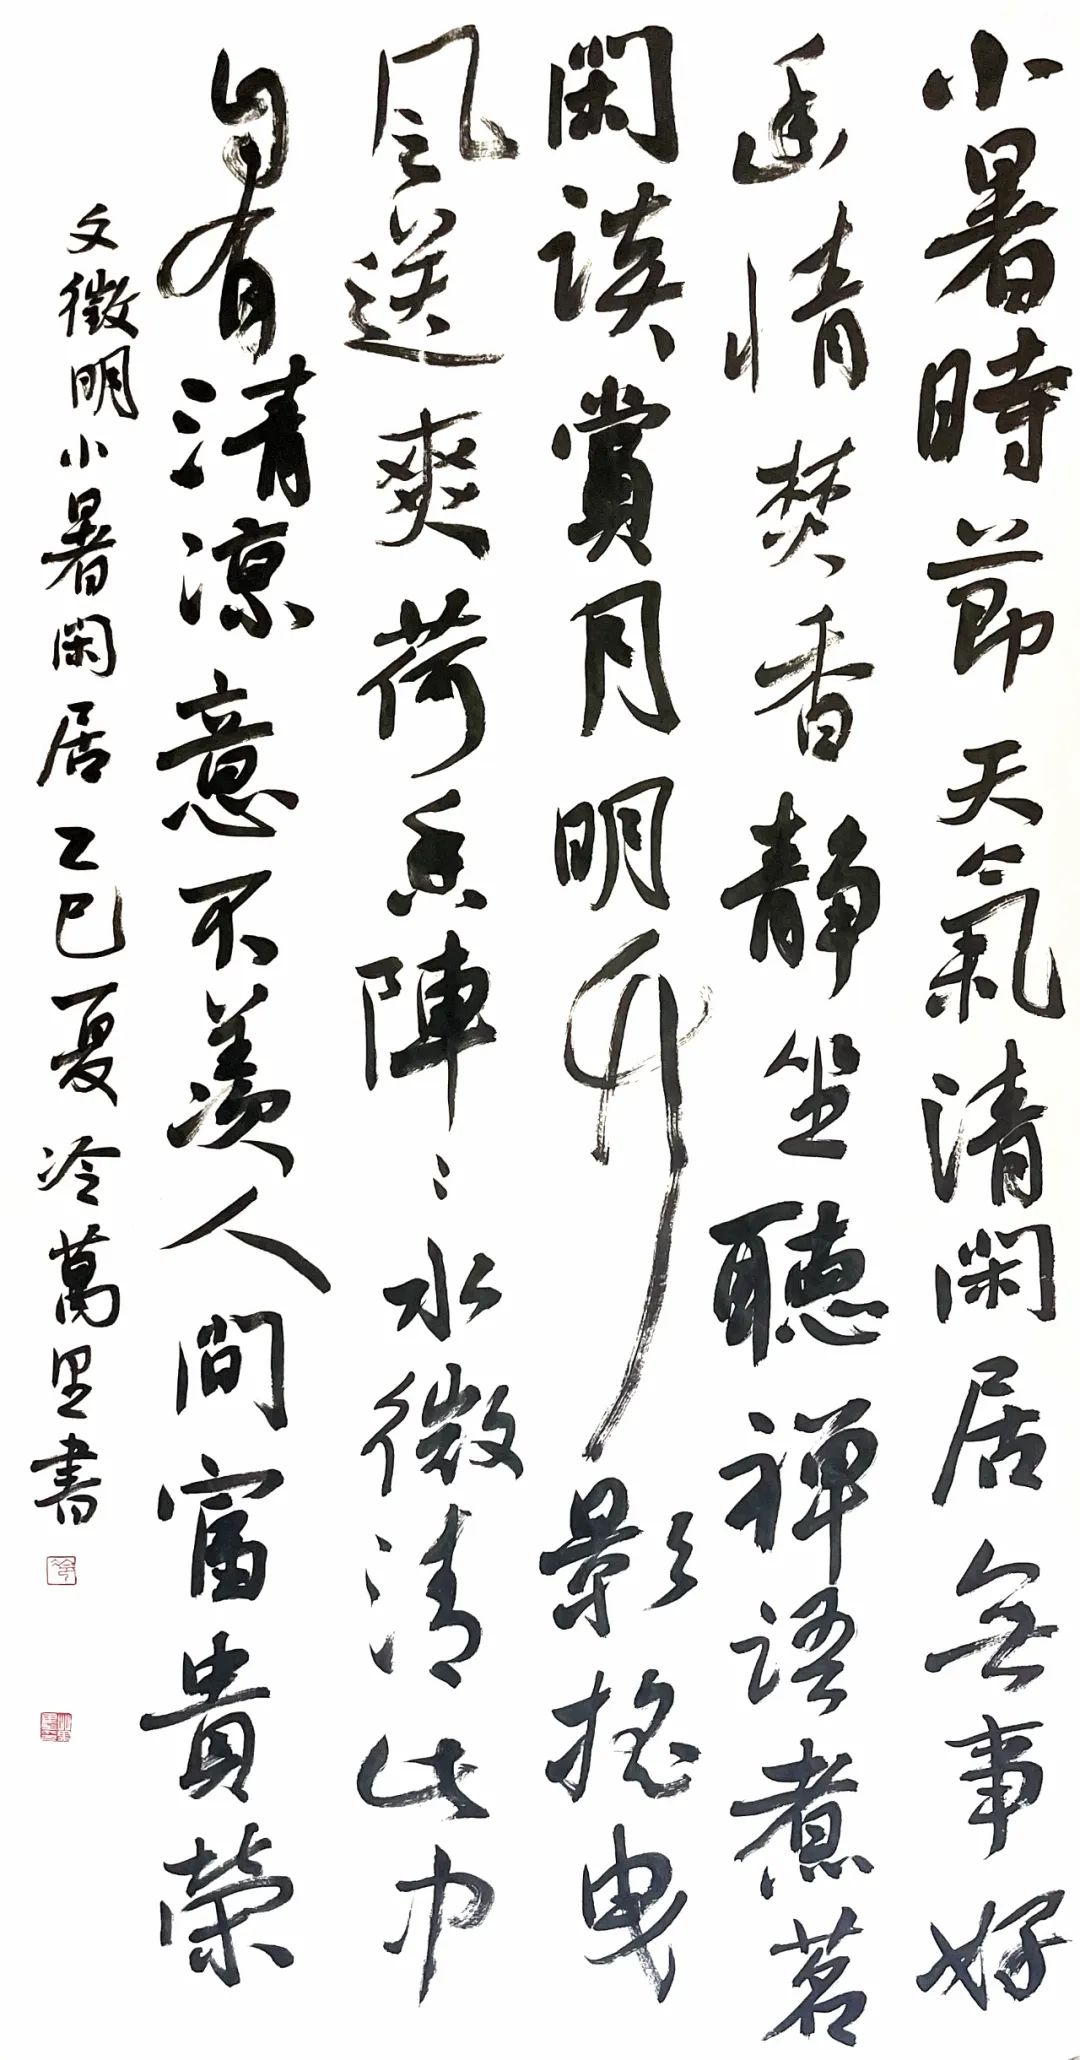 小暑時節天氣清閑居無事好
幽情焚香靜坐聽禪語煮茗
閑談賞月明竹影搖曳
風送爽荷香陣〻水微清此中
自有清涼意不羨人間富貴榮
文徵明小暑閑居乙巳夏冷萬里書